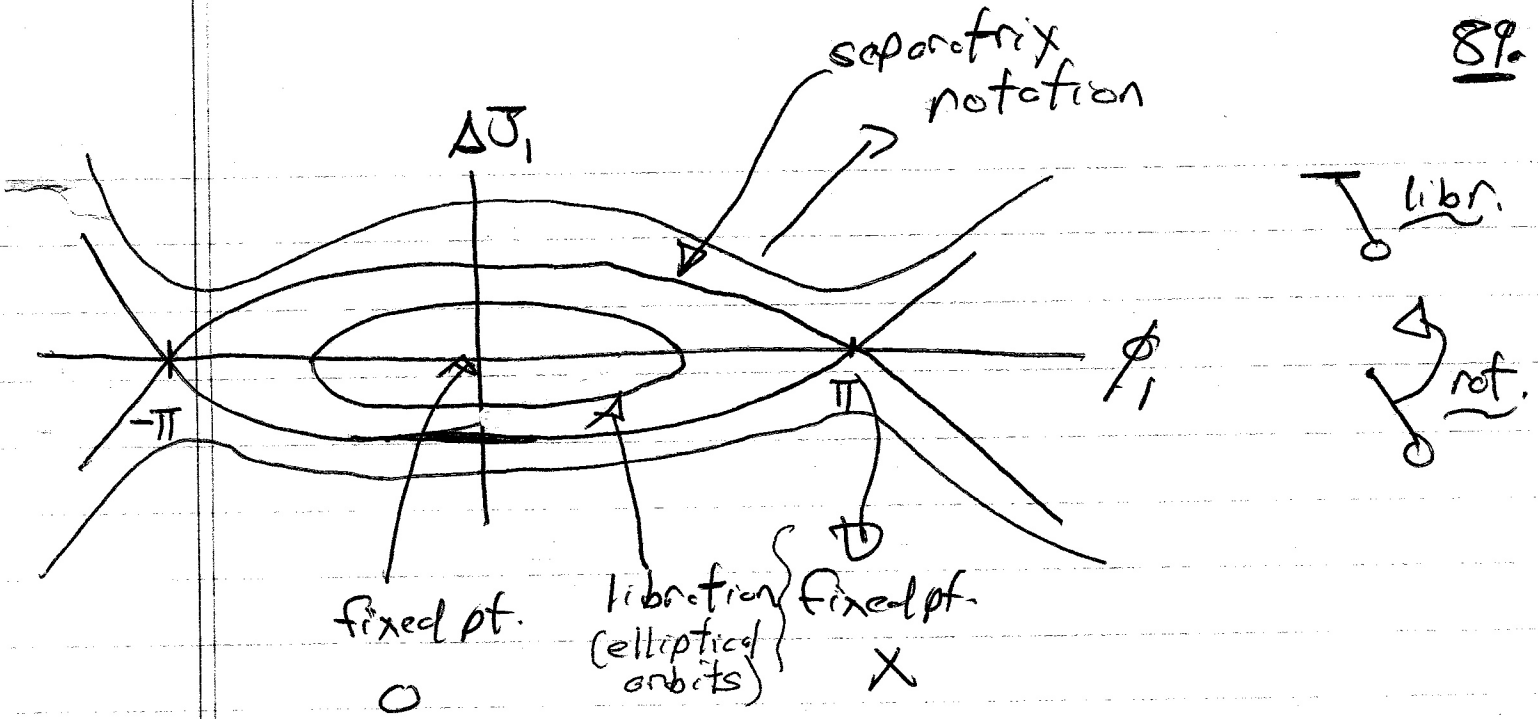 89.
separatrix
rotation
ΔJ₁
libr.
ϕ₁
rot.
-π
π
fixed pt.
libration
(elliptical
orbits)
fixed pt.
O
X